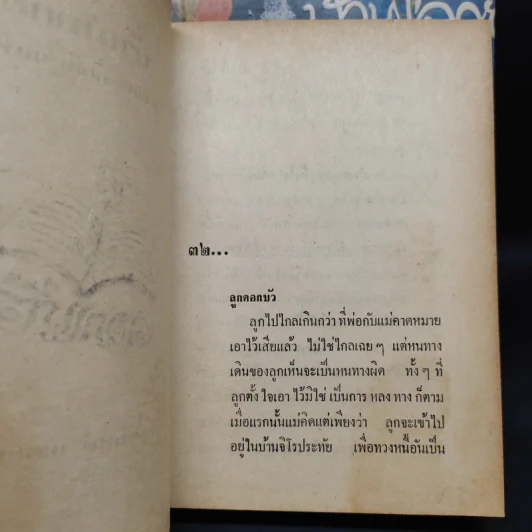 ๓๒...
ลูกดอกบัว
ลูกไปไกลเกินกว่า ที่พ่อกับแม่คาดหมาย
เอาไว้เสียแล้ว ไม่ใช่ไกลเฉย ๆ แต่หนทาง
เดินของลูกเห็นจะเป็นหนทางผิด ทั้ง ๆ ที่
ลูกตั้ง ใจเอา ไว้มิใช่ เป็นการ หลง ทาง ก็ตาม
เมื่อแรกนั้นแม่คิดแต่เพียงว่า ลูกจะเข้าไป
อยู่ในบ้านจิโรประทัย เพื่อทวงหนี้อันเป็น